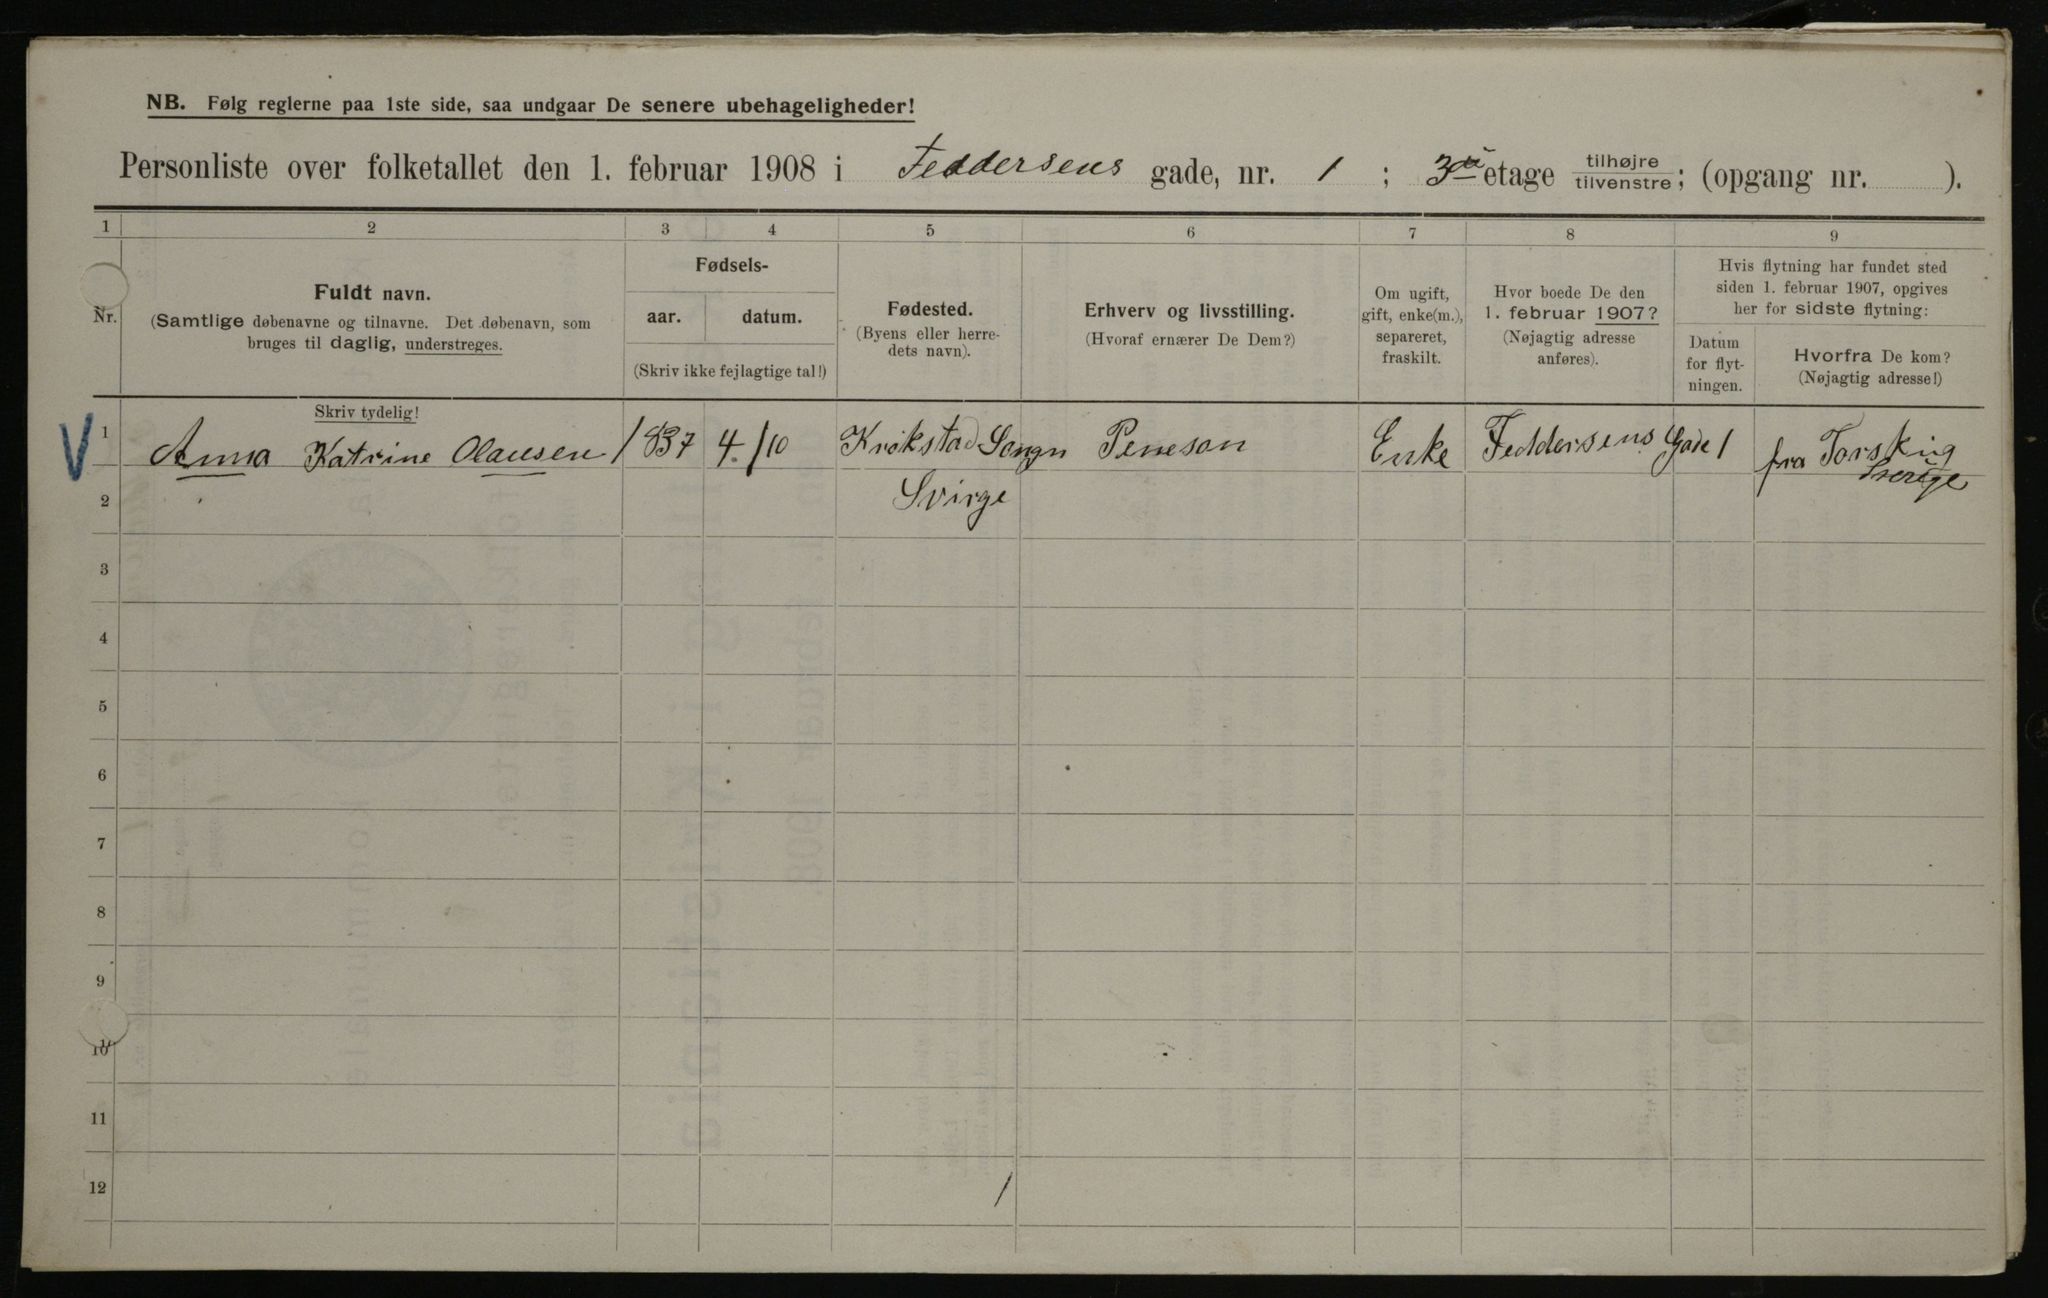 NB. Følg reglerne paa 1ste side, saa undgaar De senere ubehageligheder!
Personliste over folketallet den 1. februar 1908 i Feddersens gade, nr. 1 ; 3die etage tilhøjre tilvenstre; (opgang nr. ).
1 2 3 4 5 6 7 8 9
Nr.
Fuldt navn.
(Samtlige døbenavne og tilnavne. Det døbenavn, som
bruges til daglig, understreges.
Skriv tydelig!
Fødsels-
aar. datum.
(Skriv ikke fejlagtige tal!)
Fødested.
(Byens eller herre-
dets navn).
Erhverv og livsstilling.
(Hvoraf ernærer De Dem?)
Om ugift,
gift, enke(m.),
separeret,
fraskilt.
Hvor boede De den
1. februar 1907?
(Nøjagtig adresse
anføres).
Hvis flytning har fundet sted
siden 1. februar 1907, opgives
her for sidste flytning:
Datum
for flyt-
ningen.
Hvorfra De kom?
(Nøjagtig adresse!)
V 1 Anna Katrine Olausen 1837 4./10 Krokstad Songn Peneson Enke Feddersens Gade 1 fra Torskig
2 Svirge Sverige
3
4
5
6
7
8
9
10
11
12 /